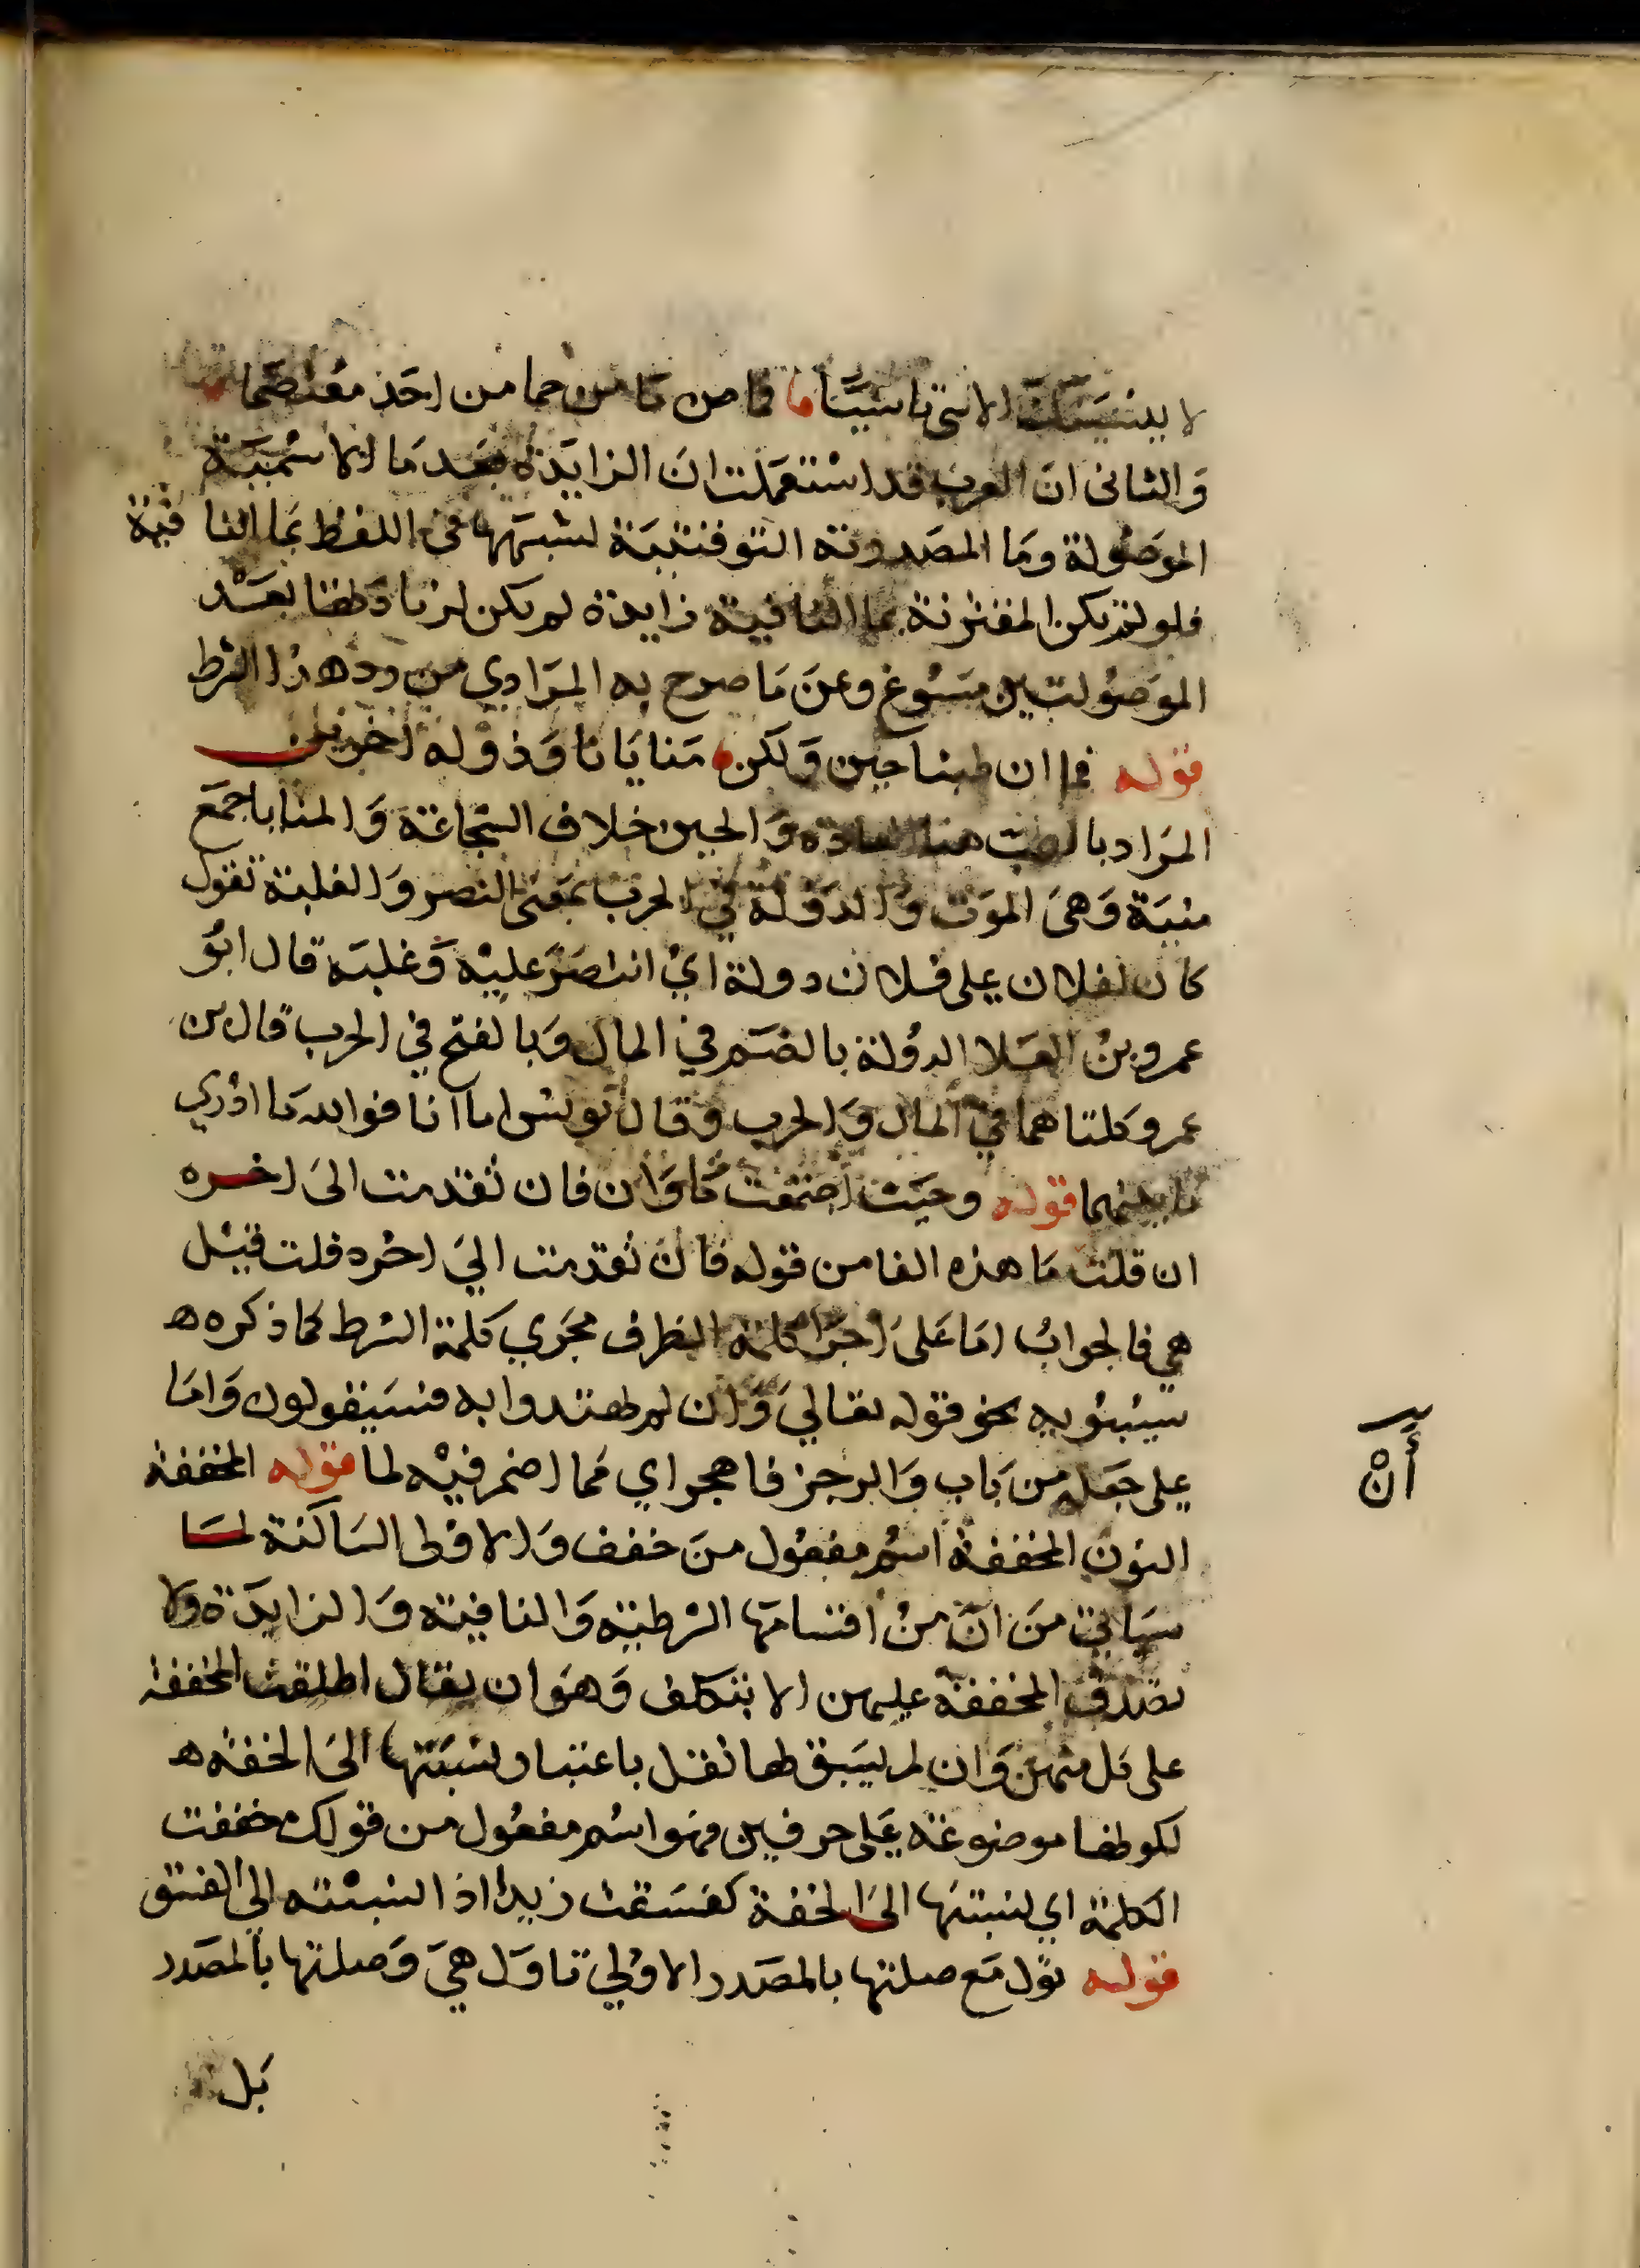 لا ينسينك الاسى تاسيا ما من حمام احد معتصما
والثاني ان العرب قد استعملت ان الزايدة بعد ما الاسمية
الموصولة وما المصدرية التوقيتية لشبهها في اللفظ بما النافية
فلو لم تكن المقترنة بما النافية زايدة لم يكن لزيادتها بعد
الموصولتين مسوغ وعن ما صرح به المرادي من ردهذا الشرط
قوله فما ان طبنا جبن ولكن منايانا ودولة اخرينا
المراد بالطب هنا العادة والجبن خلاف الشجاعة والمنايا جمع
منية وهي الموت والدولة في الحرب بمعنى النصر والغلبة تقول
كان لفلان على فلان دولة اي انتصر عليه وغلبه قال ابو
عمرو بن العلا الدولة بالضم في المال وبالفتح في الحرب قال بن
عمر وكلتاهما في المال والحرب وقال يونس اما انا فوالله ما ادري
ما بينهما قوله وحيث اجتمعت ما وان فان تقدمت الى اخره
ان قلت ما هذه الفا من قوله فان تقدمت الي اخره قلت قيل
هي فا لجواب اما على اجرا كلمة الظرف مجري كلمة الشرط كما ذكره
سيبويه نحو قوله تعالي وان لم يهتدوا به فسيقولون واما
على جعله من باب والرجز فاهجر اي مما اضمر فيه اما قوله المخففة
أن
النون المخففة اسم مفعول من خفف والاولى الساكنة لما
سياتي من ان من اقسامها الشرطية والنافية والزايدة ولا
تصدق المخففة عليهن الا بتكلف وهو ان يقال اطلقت المخففة
على كل منهن وان لم يسبق لها نقل باعتبار نسبتها الى الخفة
لكونها موضوعة على حرفين فهو اسم مفعول من قولك خففت
الكلمة اي نسبتها الى الخفة كفسقت زيدا اذا نسبته الى الفسق
قوله تؤول مع صلتها بالمصدر الاولي تاول هي وصلتها بالمصدر
بل